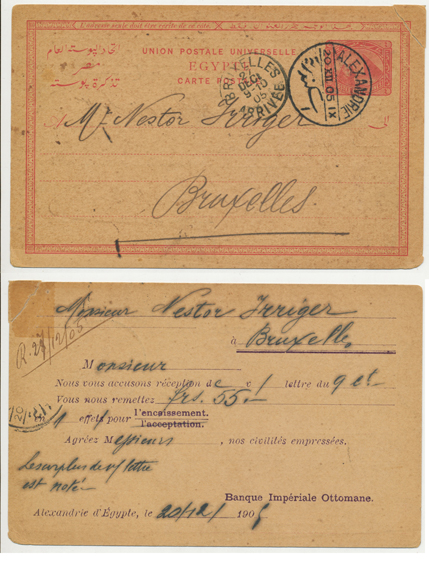 UNION POSTALE UNIVERSELLE
اتحاد بوسته عام
EGYPTE
مصر
CARTE POSTALE
تذكرة بوسته
BRUXELLES
ARRIVÉE
ALEXANDRIE
20 XII 05 IX
À Mr Nestor Irriger
الى
Bruxelles.
Monsieur Nestor Irriger
à Bruxelles
R. 27/12/05
Monsieur
Nous vous accusons réception de v/ lettre du 9 ct
Vous nous remettez frs. 55.-
S/ 1 effet pour l'encaissement.
l'acceptation.
Agréez Messieurs, nos civilités empressées.
Le surplus de v/ lettre
est noté
Banque Impériale Ottomane.
Alexandrie d'Égypte, le 20/12/ 1905